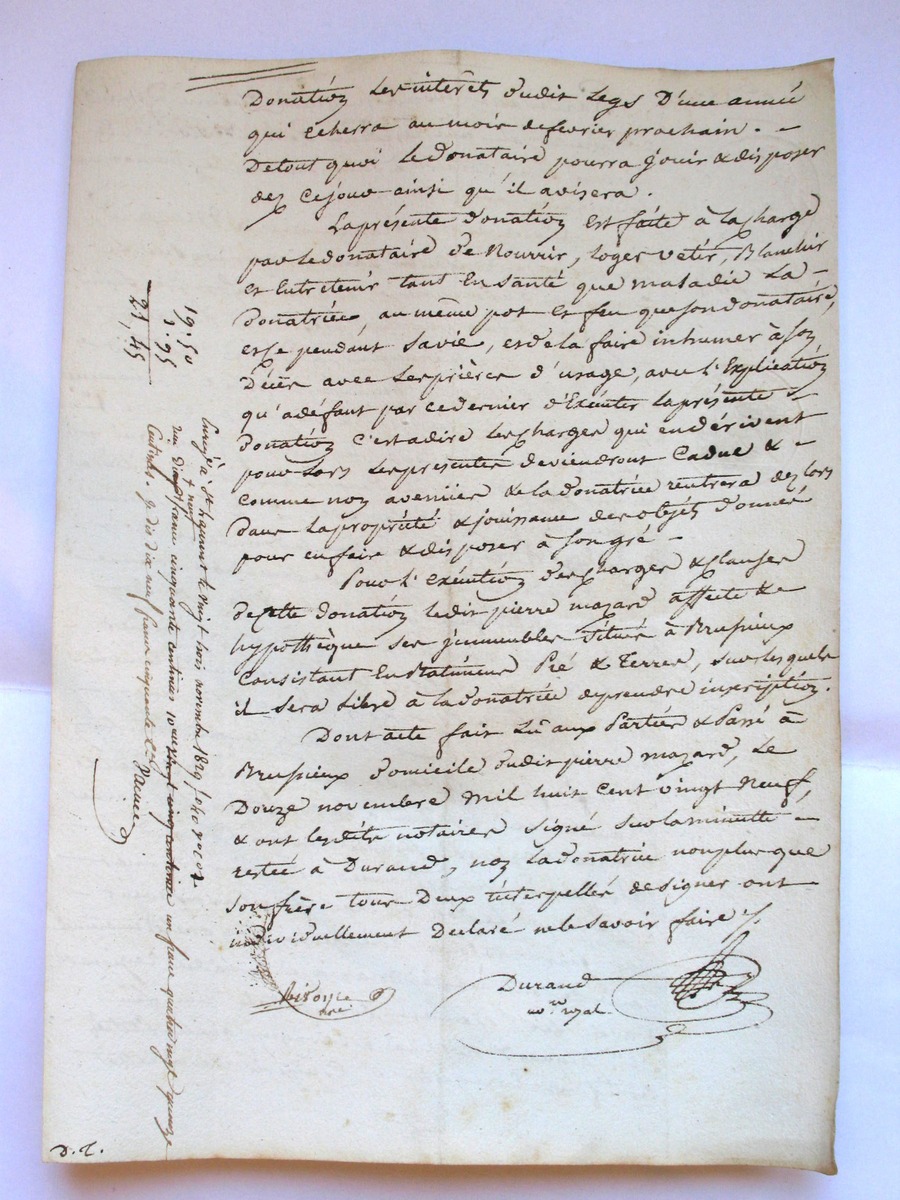 Donation les intérêts dudit legs d'une année
qui echerra au mois de fevrier prochain. -
De tout quoi le donataire pourra jouir & disposer
dez ce jour ainsi qu'il avisera.
La présente donation est faite à la charge
par le donataire de nourrir, loger vetir, Blanchir
et Entretenir tant En santé que maladie la -
donatrice, au même pot et feu que son donataire,
et ce pendant sa vie, et de la faire inhumer à son
Décès avec les prières d'usage, avec l'Explication
qu'a défaut par ce dernier d'Exécuter la présente -
donation c'est adire les charges qui en dérivent
pour lors les presentes deviendront Caduc & -
comme non avenues & la donatrice rentrera dez lors
dans la propriété & jouissance des objets donnés
pour en faire & disposer à son gré -
Pour l'exécution des charges & clauses
de cette donation ledit pierre mazard affecte &
hypothèque ses jmmeubles situés à Brusieux
Consistant En Batiments Pré & Terres, sur lesquels
il sera libre à la donatrice de prendre inscription.
Dont acte fait lû aux Parties & Passé à
Brusieux domicile dudit pierre mazard, le
Douze novembre mil huit cent vingt neuf,
& ont lesdits notaires signé sur la minutte -
restée à Durand, non la donatrice non plus que
son frère tous deux interpellés de signer ont
individuellement déclaré ne le savoir faire /.
Durand
no.re royal
19. 50
1. 95
21, 45
Enregé à St le vingt trois novembre 1829
dix neuf francs cinquante centimes
Centimes. Je dis dix neuf francs cinquante c.es
un franc quatre vingt quinze
D. T.